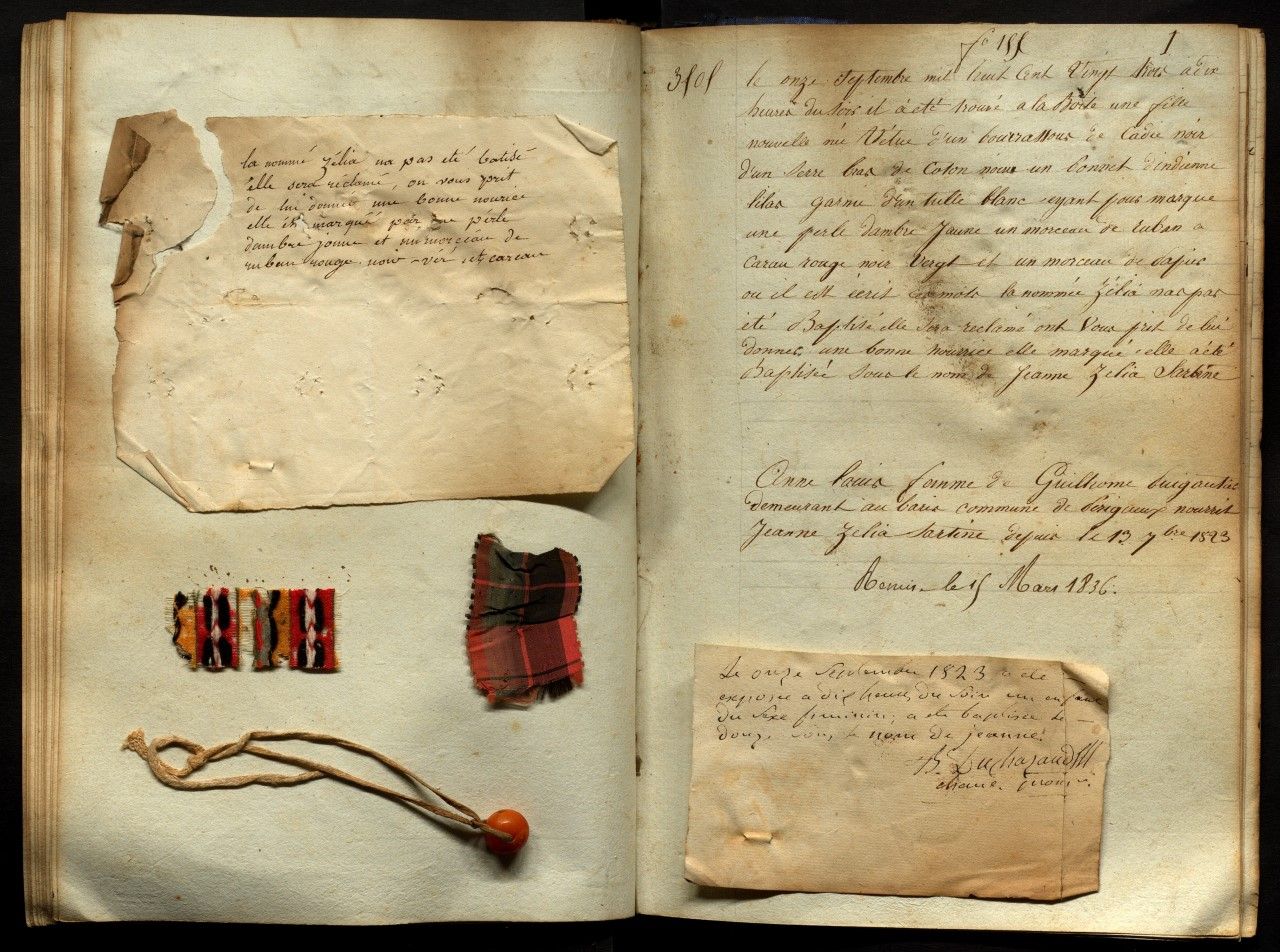 la nommé Zélia na pas eté batisé
elle sera réclamé, on vous prit
de lui donner une bonne nourice
elle est marquéé par une perle
dambre jonne et un morceau de
ruban rouge noir vér et careau
fo 155 1
3505
le onze Septembre mil huit Cent Vingt trois a dix
heures du soir il à été trouvé a la Boite une fille
nouvelle né Vétue d'un bourrassous de Cadis noir
d'un Serre bras de Coton un bonnet d'indienne
lilas garnie d'un tulle blanc eyant pour marque
une perle d'ambre Jaune un morceau de ruban a
Carau rouge noir Vergt et un morceau de papier
ou il est ecrit ces mots la nommée Zélia nas pas
été Baptisé elle sera reclamé ont Vous prit de lui
donner une bonne nourrice elle marqué elle a été
Baptisée sous le nom de Jeanne Zelia Sartine
Anne femme de Guilhome
demeurant au commune de nourrit
Jeanne Zelia Sartine depuis le 13 7bre 1823
Remis le 15 Mars 1836.
Le onze Septembre 1823 a ete
exposée a dix heures du Soir un enfant
du Sexe feminin; a ete baptisée le
douze sous le nom de jeanne.